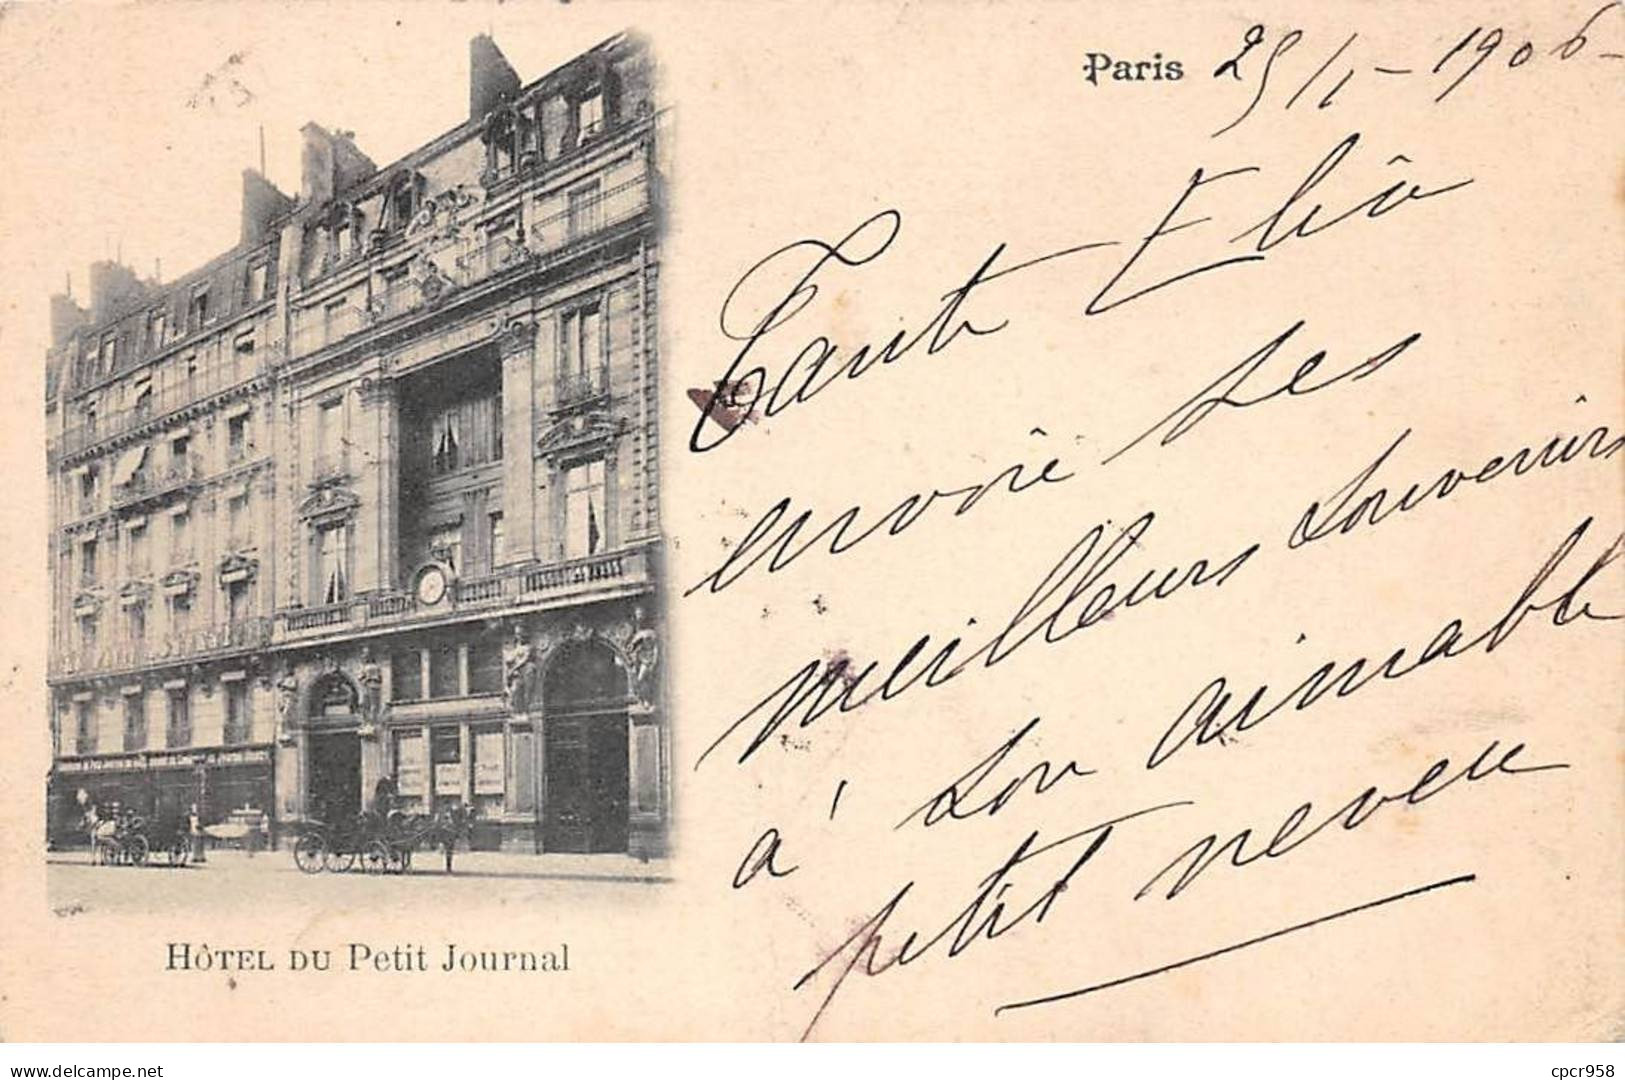 Paris 25/1-1906-
Tante
envoie ses
meilleurs souvenirs
à son aimable
petit neveu
HÔTEL DU Petit Journal
delcampe.net
cpcr958